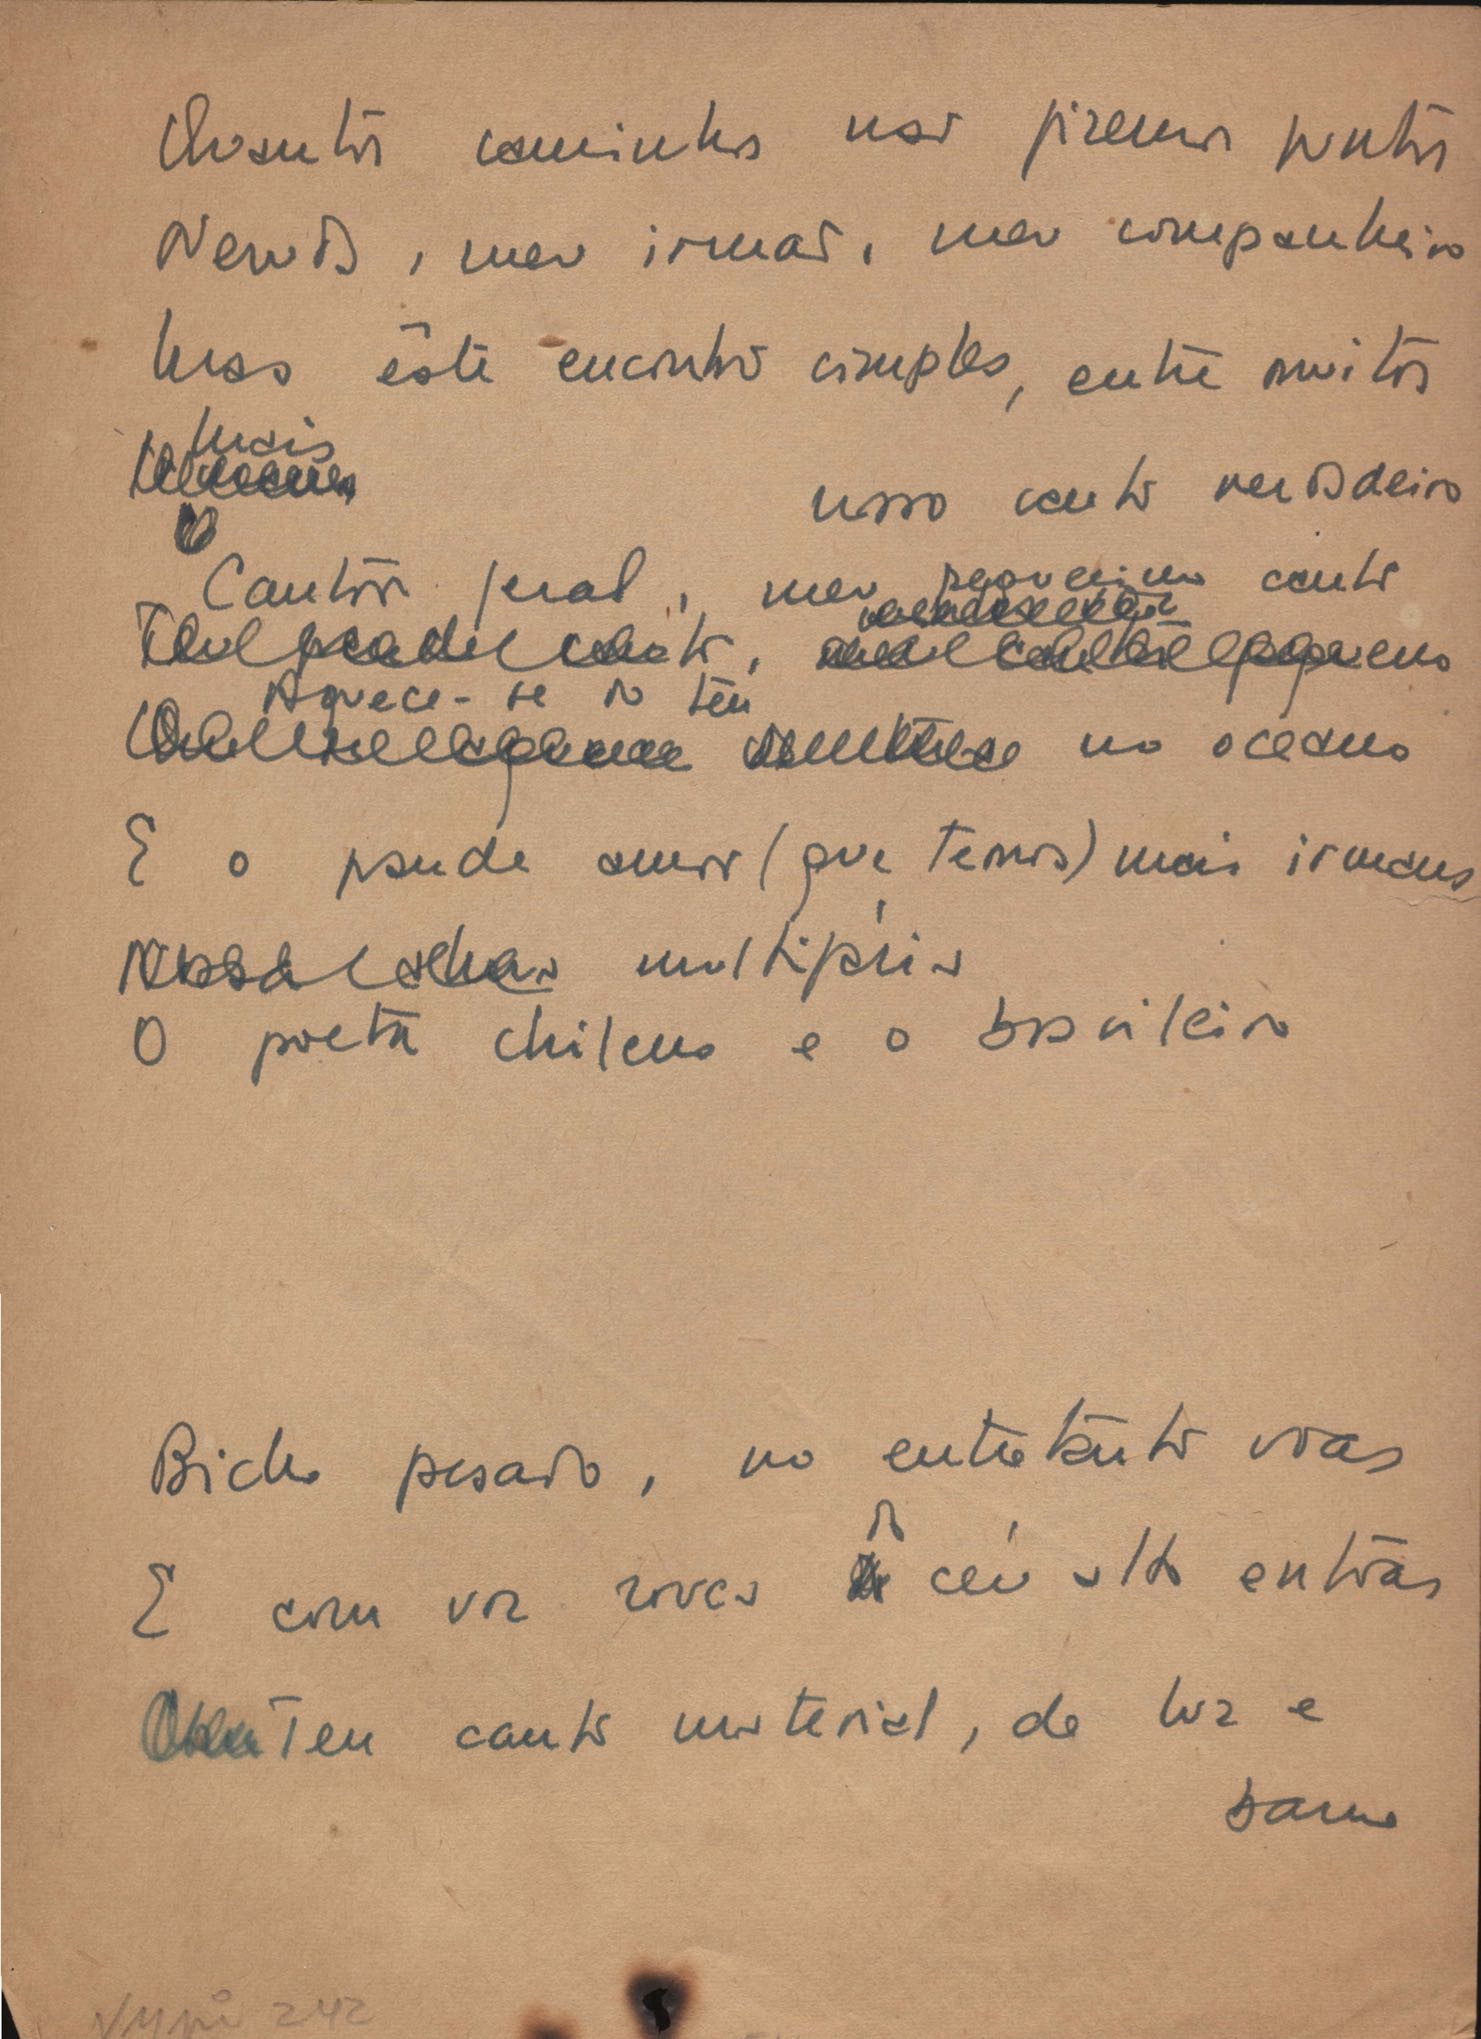 Quantos caminhos não fizemos juntos
Neruda, meu irmão, meu companheiro
Mas êste encontro simples, entre muitos
Mais
nosso canto verdadeiro
Cantor geral, meu pequenino canto
canto, pequeno
Aquece-se ao teu
no oceano
E o grande amor (que temos) mais irmana
multipária
O poeta chileno e o brasileiro
Bicho pesado, no entretanto voas
E com voz rouca ao céu alto entoas
Teu canto material, de luz e
barro
242